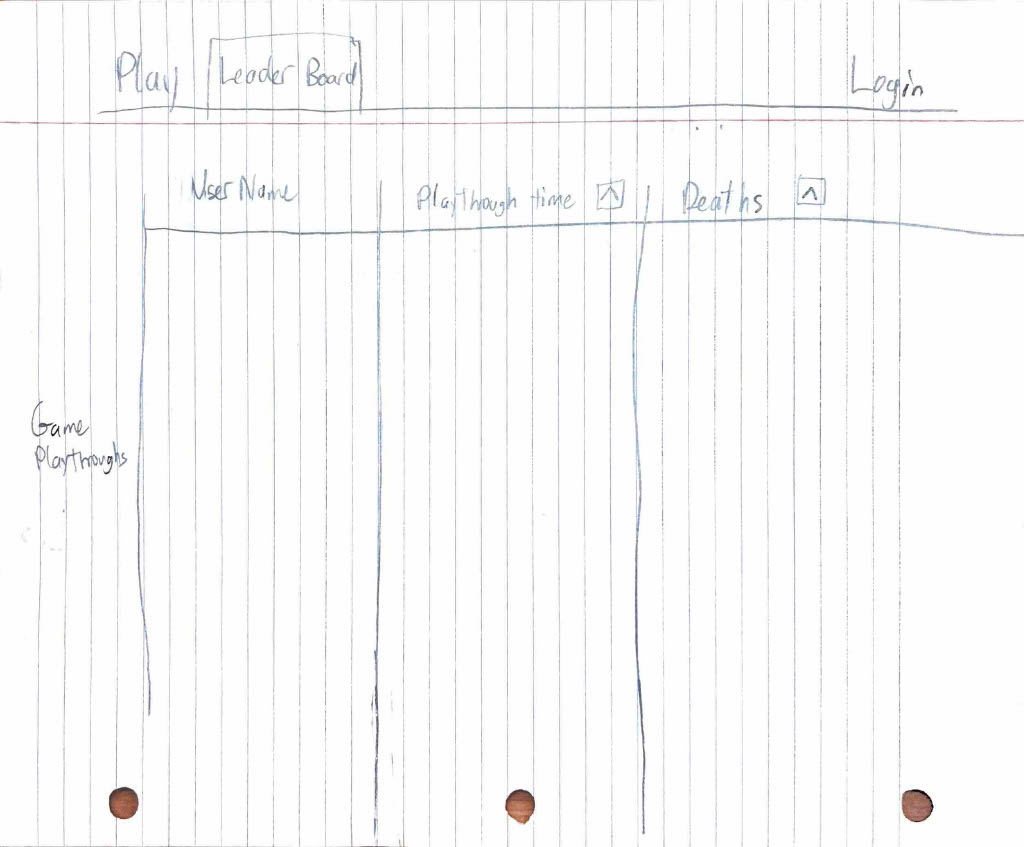 Play Leader Board Login
UserName Playthrough time ^ Deaths ^
Game
Playthroughs